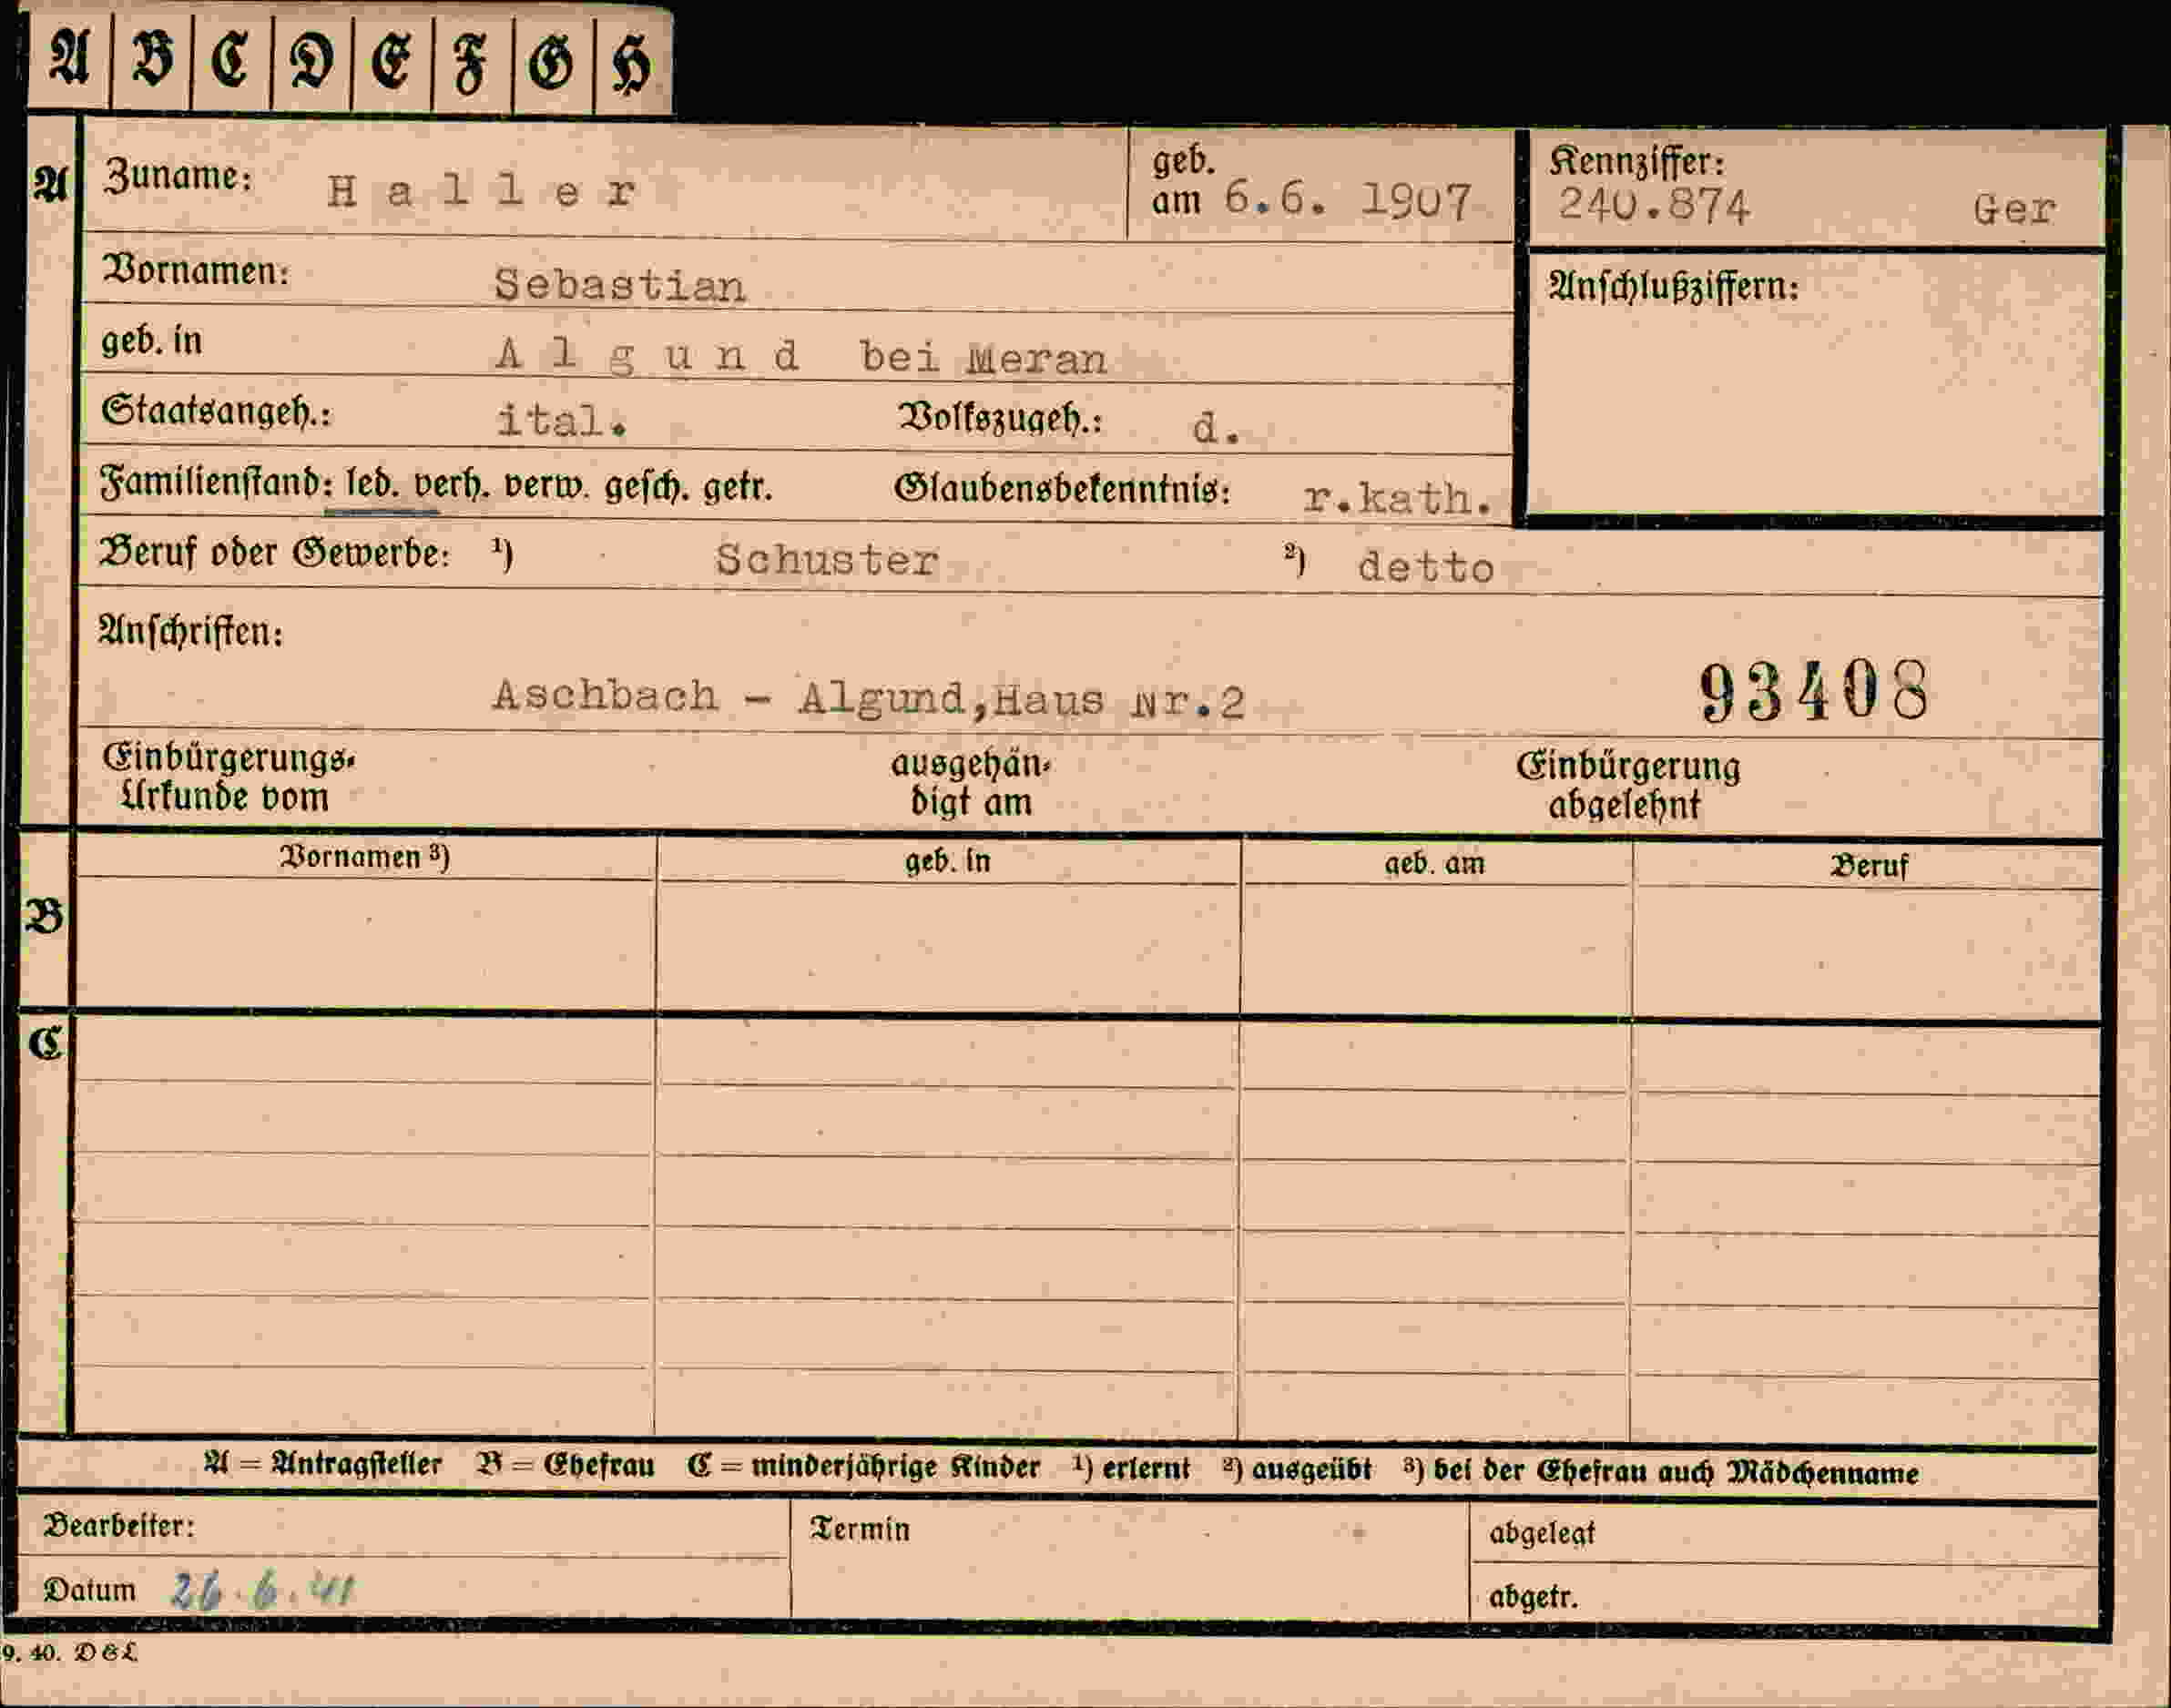 A B C D E F G H
A Zuname: Haller geb. am 6.6. 1907 Kennziffer: 240.874 Ger
Vornamen: Sebastian Anschlußziffern:
geb. in Algund bei Meran
Staatsangeh.: ital. Volkszugeh.: d.
Familienstand: led. verh. verw. gesch. getr. Glaubensbekenntnis: r.kath.
Beruf oder Gewerbe: ¹) Schuster ²) detto
Anschriften:
Aschbach - Algund,Haus Nr.2 93408
Einbürgerungs- Urkunde vom ausgehän- digt am Einbürgerung abgelehnt
Vornamen ³) geb. in geb. am Beruf
B
C
A = Antragsteller B = Ehefrau C = minderjährige Kinder ¹) erlernt ²) ausgeübt ³) bei der Ehefrau auch Mädchenname
Bearbeiter: Termin abgelegt
Datum 26.6.41 abgetr.
9. 40. D&L